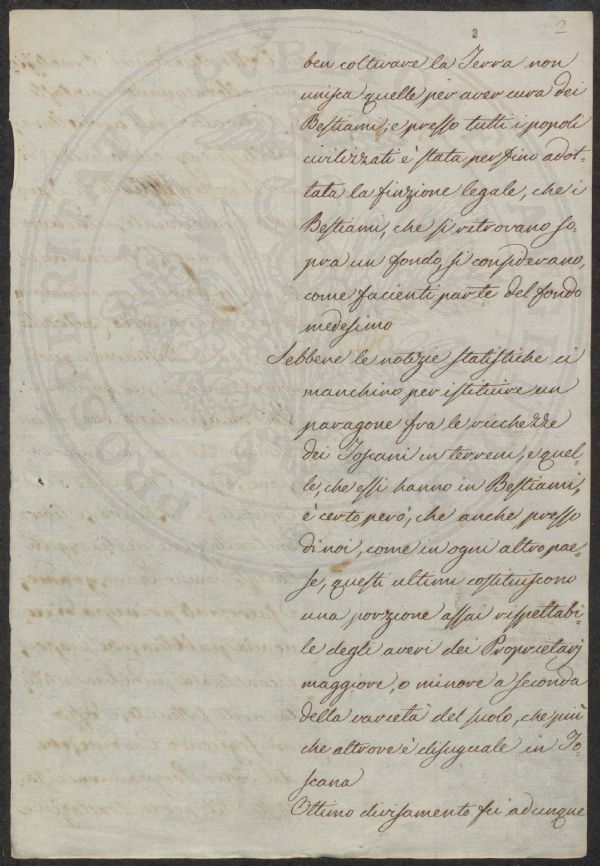 3 2
ben coltivare la Terra non
unisca quelle per aver cura dei
Bestiami; e presso tutti i popoli
civilizzati è stata per fino adot-
tata la finzione legale, che i
Bestiami, che si ritrovano so-
pra un fondo, si considerano,
come facienti parte del fondo
medesimo
Sebbene le notizie statistiche ci
manchino per istituire un
paragone fra le ricchezze
dei Toscani in terreni, e quel-
le, che essi hanno in Bestiami,
è certo però, che anche presso
di noi, come in ogni altro pae-
se, questi ultimi costituiscono
una porzione assai rispettabi-
le degli averi dei Proprietarj
maggiore, o minore a seconda
della varietà del suolo, che più
che altrove è disuguale in To-
scana
Ottimo divisamento fu adunque